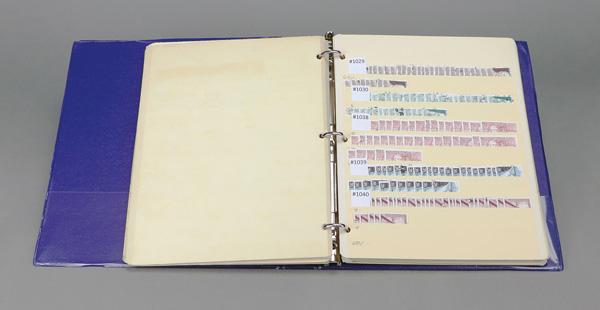 #1029
#1030
#1038
#1039
#1040